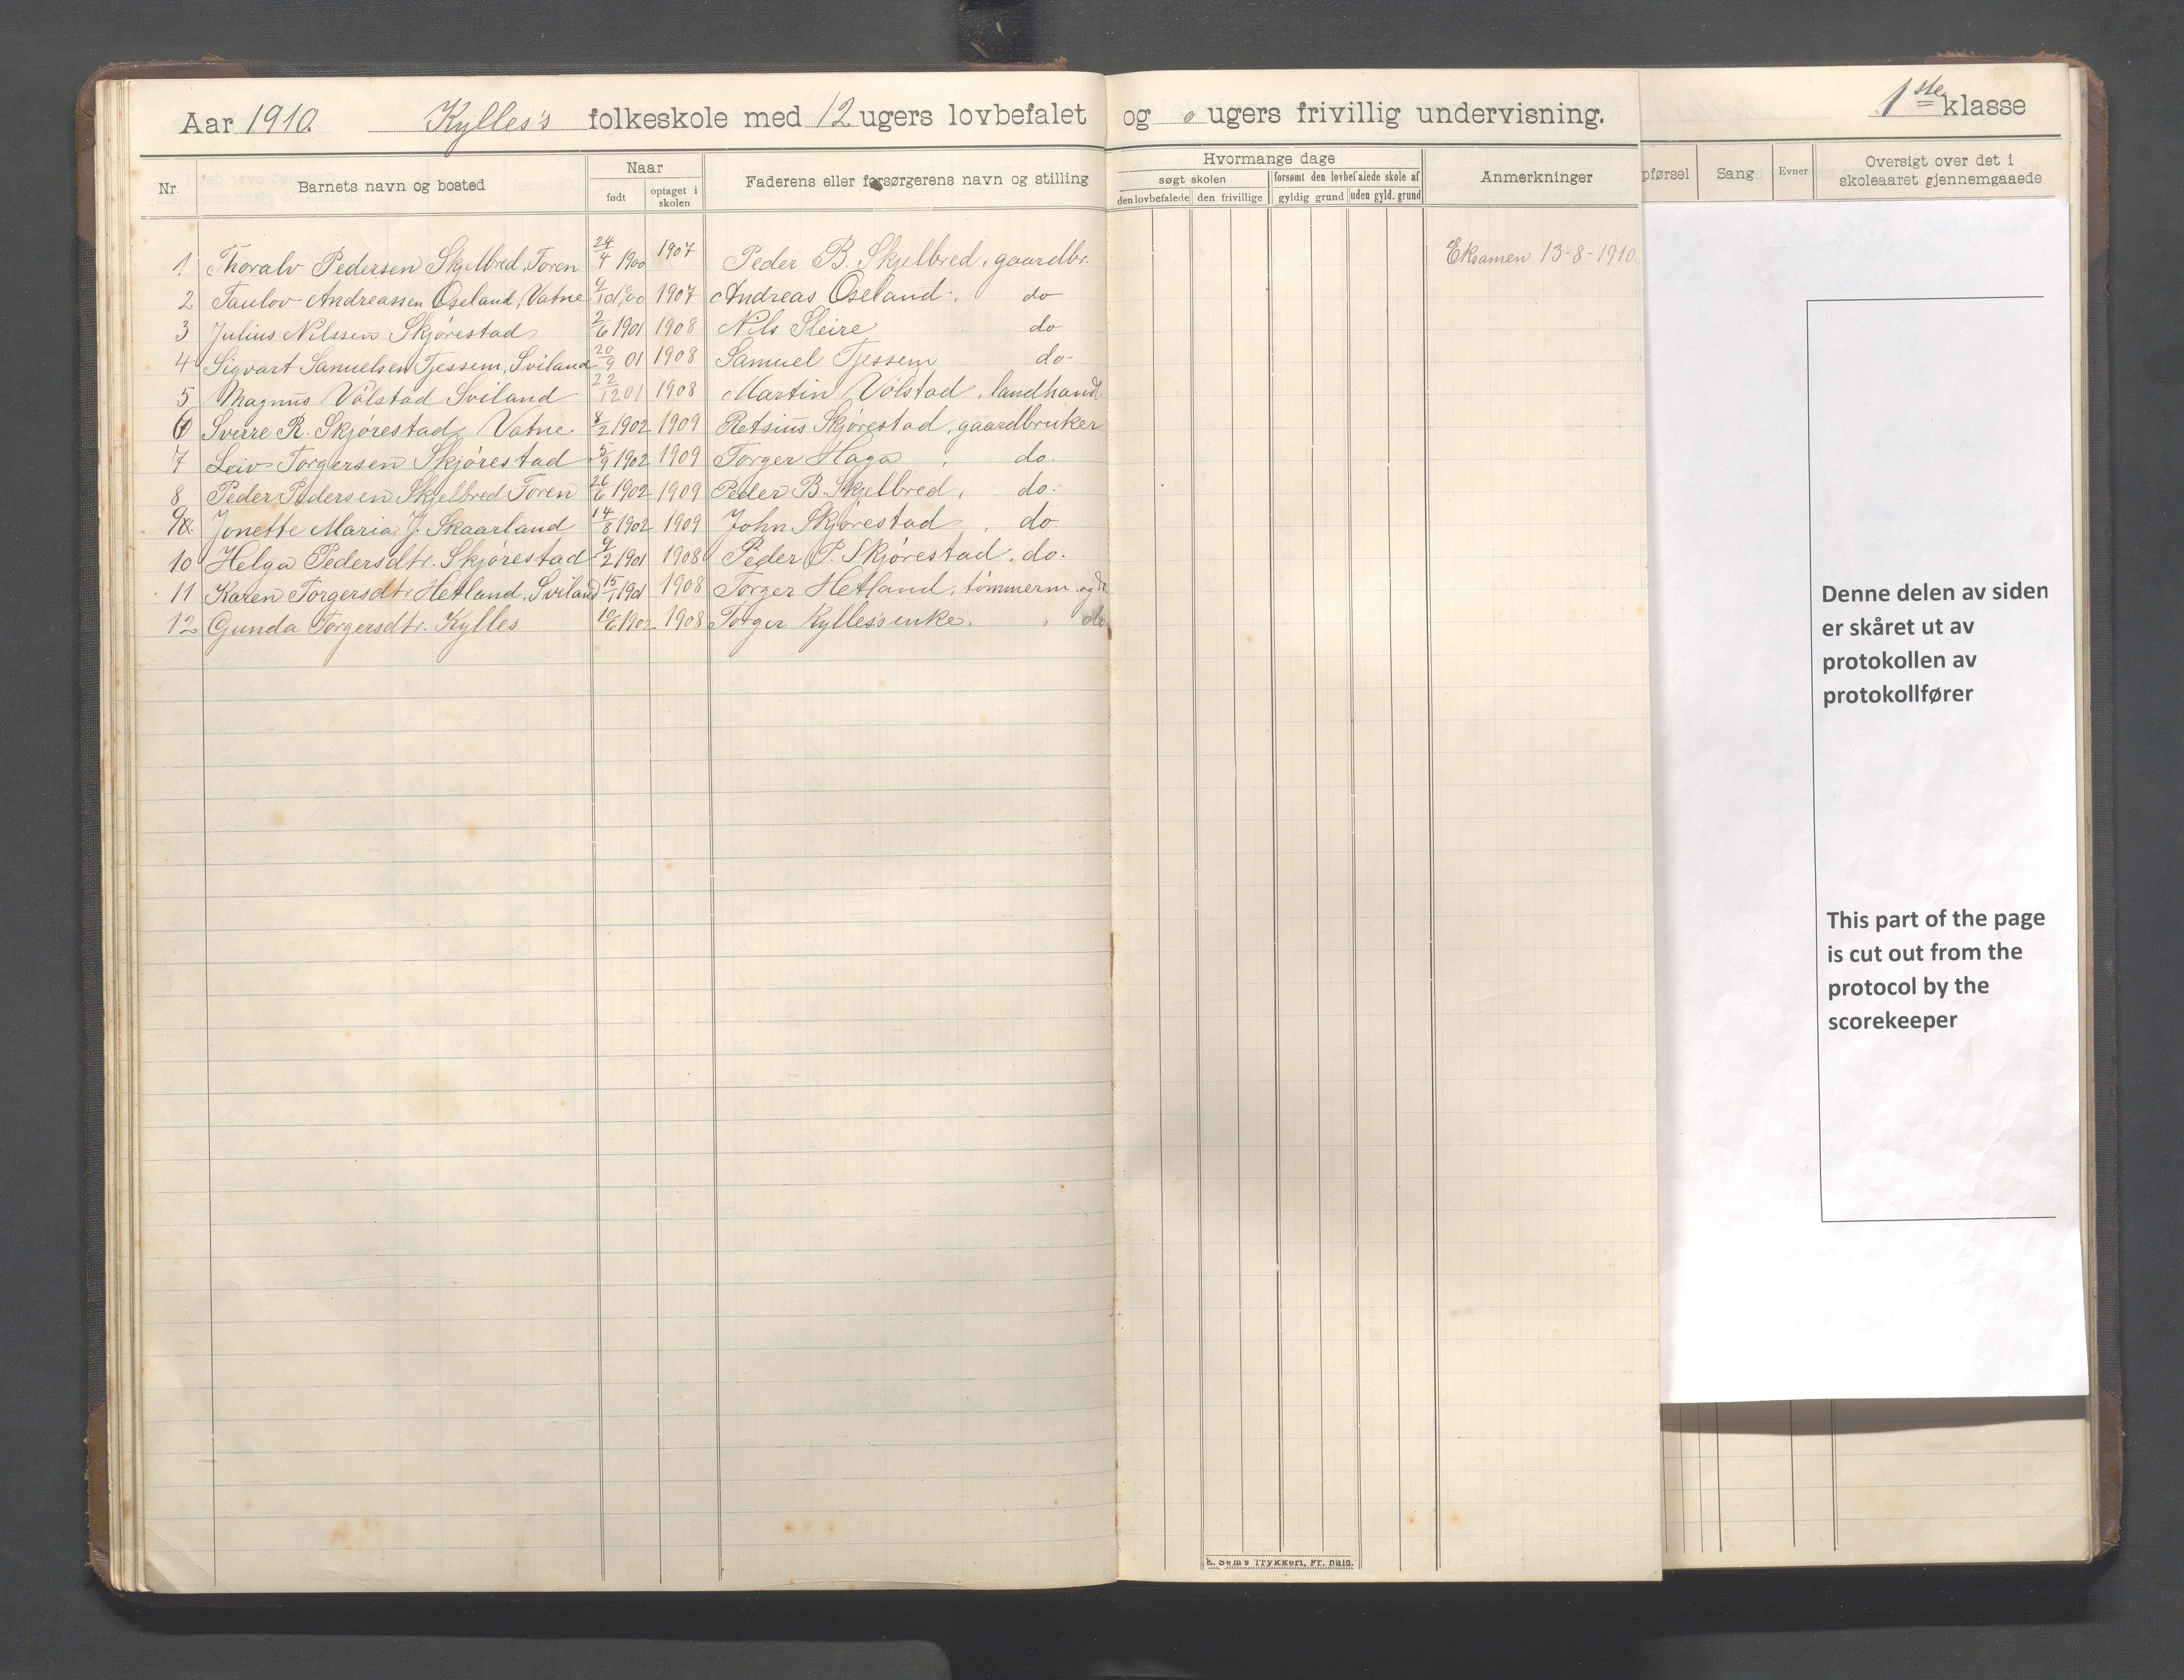 Aar 1910. Kylles's folkeskole med 12 ugers lovbefalet og o ugers frivillig undervisning. 1ste klasse
Nr. Barnets navn og bosted Naar født optaget i skolen Faderens eller forsørgerens navn og stilling Hvormange dage søgt skolen den lovbefalede den frivillige forsømt den lovbefalede skole af gyldig grund uden gyld. grund Anmerkninger pførsel Sang Evner Oversigt over det i skoleaaret gjennemgaaede
1 Thoralv Pedersen Skjelbred, Foren 24/4 1900 1907 Peder B. Skjelbred, gaardbr. Eksamen 13-8-1910.
2 Taulov Andreassen Oseland, Vatne 9/10 1900 1907 Andreas Oseland, do
3 Julius Nilssen Skjørestad 2/6 1901 1908 Nils Sleire do
4 Sigvart Samuelsen Tjessem, Sviland 20/9 01 1908 Samuel Tjessem do-
5 Magnus Vølstad Sviland 22/12 01 1908 Martin Vølstad, landhandl.
6 Sverre R. Skjørestad, Vatne. 8/2 1902 1909 Retsius Skjørestad, gaardbruker
7 Leiv Torgersen Skjørestad 5/9 1902 1909 Torger Haga, do.
8 Peder Pedersen Skjelbred Foren 26/6 1902 1909 Peder B. Skjelbred, do.
9 Jonette Maria J. Skaarland 14/8 1902 1909 John Skjørestad, do.
10 Helga Pedersdtr. Skjørestad 9/2 1901 1908 Peder P. Skjørestad. do.
11 Karen Torgersdtr. Hetland, Sviland 15/1 1901 1908 Torger Hetland, tømmerm. og do.
12 Gunda Torgersdtr. Kylles 10/6 1902 1908 Torger Kylles's enke. do
Denne delen av siden
er skåret ut av
protokollen av
protokollfører
This part of the page
is cut out from the
protocol by the
scorekeeper
E. Sem's Trykkeri, Fr. hald.